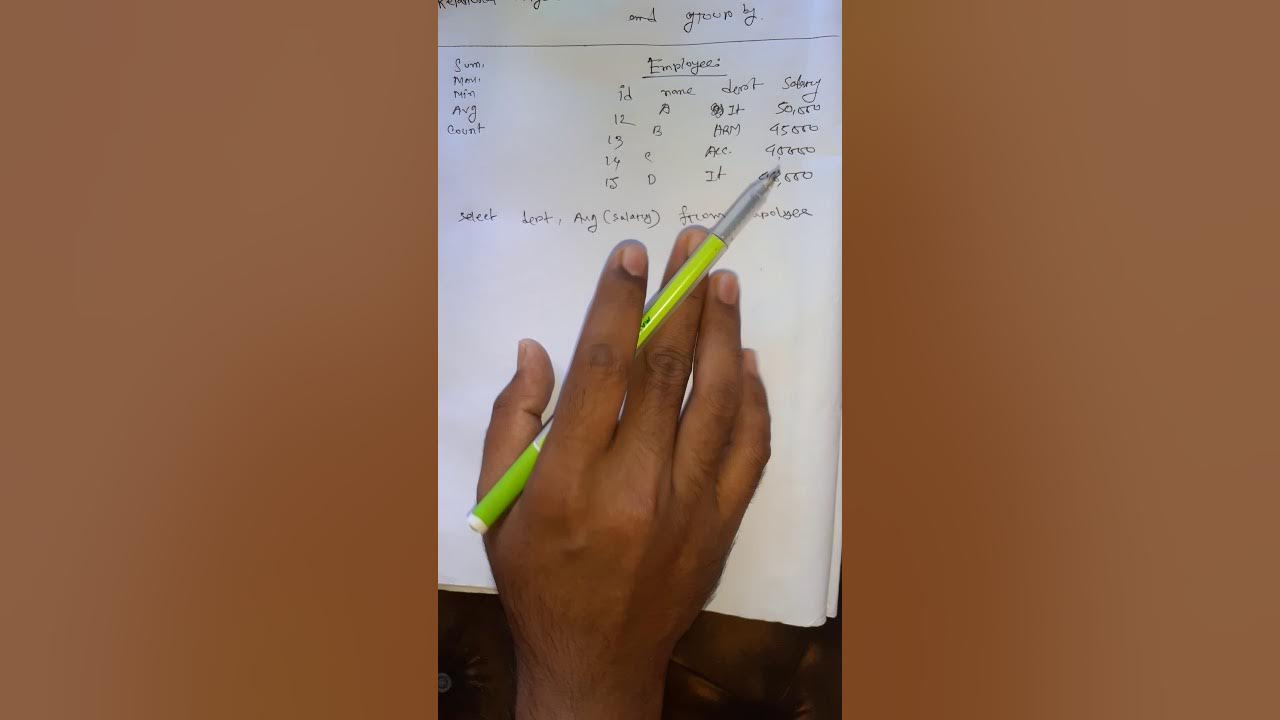 and group by.
Sum.
Max.
Min
Avg
Count
Employee:
id name dept Salary
12 A It 50,000
13 B HRM 45000
14 C Acc. 40000
15 D It
select dept, Avg (salary) from